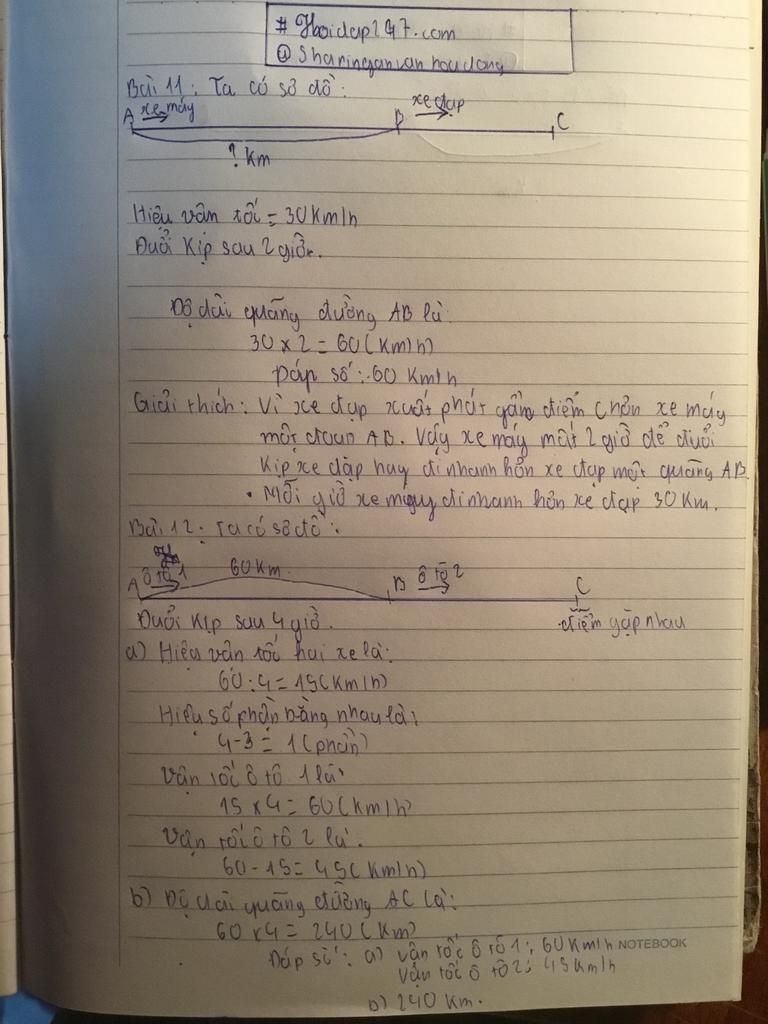 # Hoidap247.com
@ Sharinganvanhoadong
Bài 11: Ta có sơ đồ:
A xe máy B xe đạp C
? Km
Hiệu vân tốc = 30Km/h
Đuổi Kịp sau 2 giờ.
Độ dài quãng đường AB là:
30 x 2 = 60 (Km/h)
Đáp số: 60 Km/h
Giải thích: Vì xe đạp xuất phát gần điểm C hơn xe máy
một đoạn AB. Vậy xe máy mất 2 giờ để đuổi
Kịp xe đạp hay đi nhanh hơn xe đạp một quãng AB.
• Mỗi giờ xe máy đi nhanh hơn xe đạp 30 Km.
Bài 12: Ta có sơ đồ:
A ô tô 1 60 Km B ô tô 2 C
Đuổi Kịp sau 4 giờ. điểm gặp nhau
a) Hiệu vân tốc hai xe là:
60 : 4 = 15 (Km/h)
Hiệu số phần bằng nhau là:
4 - 3 = 1 (phần)
Vận tốc ô tô 1 là:
15 x 4 = 60 (Km/h)
Vận tốc ô tô 2 là:
60 - 15 = 45 (Km/h)
b) Độ dài quãng đường AC là:
60 x 4 = 240 (Km)
Đáp số: a) vận tốc ô tô 1: 60 Km/h NOTEBOOK
Vận tốc ô tô 2: 45 Km/h
b) 240 Km.